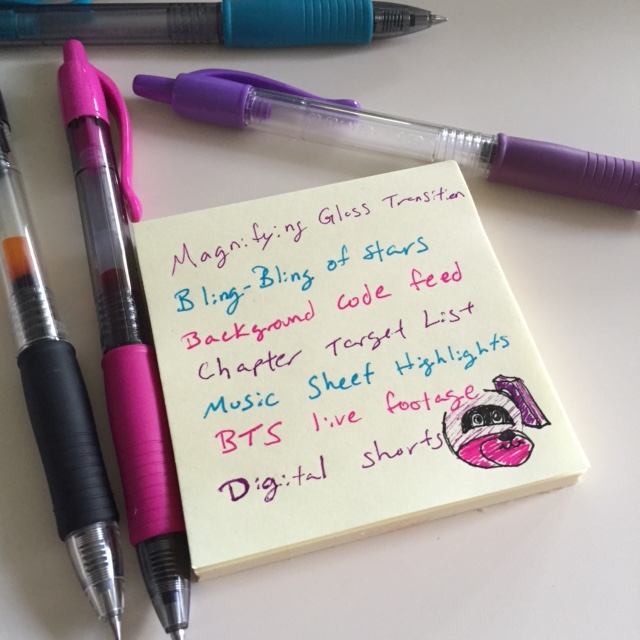 Magnifying Glass Transition
Bling-Bling of stars
Background code feed
Chapter Target List
Music Sheet Highlights
BTS live footage
Digital shorts